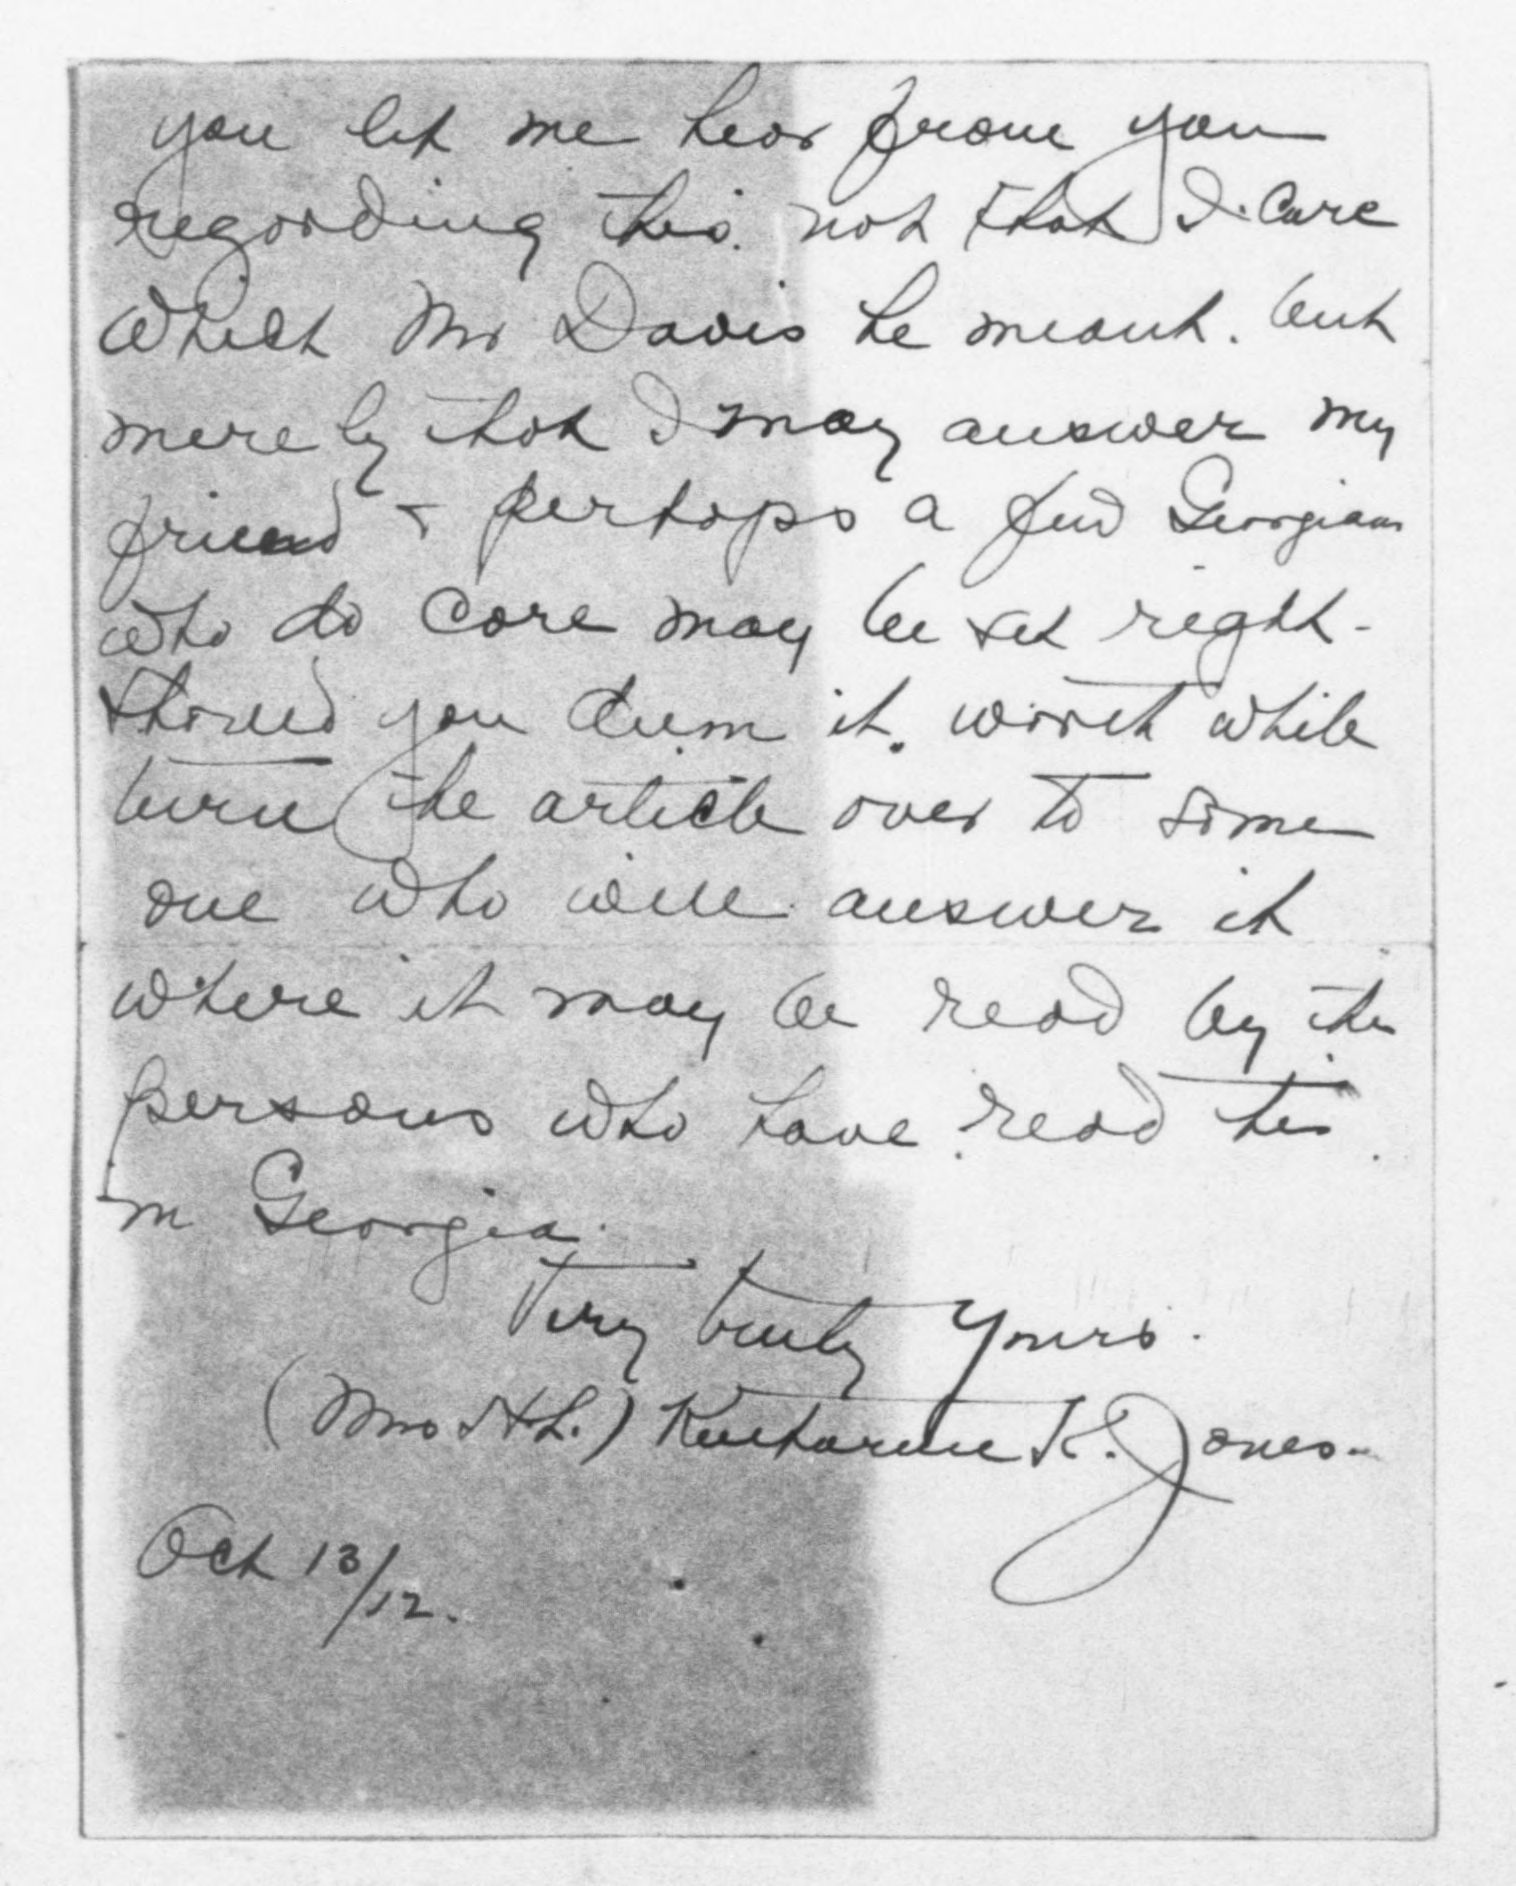 you let me hear from you
regarding this. not that I care
which Mr Davis he meant. but
merely that I may answer my
friend & perhaps a few Georgians
who do care may be set right -
Should you deem it worth while
turn the article over to some
one who will answer it
where it may be read by the
persons who have read this
in Georgia.
Very truly Yours.
(Mrs H L.) Katharine K. Jones -
Oct 13/12.